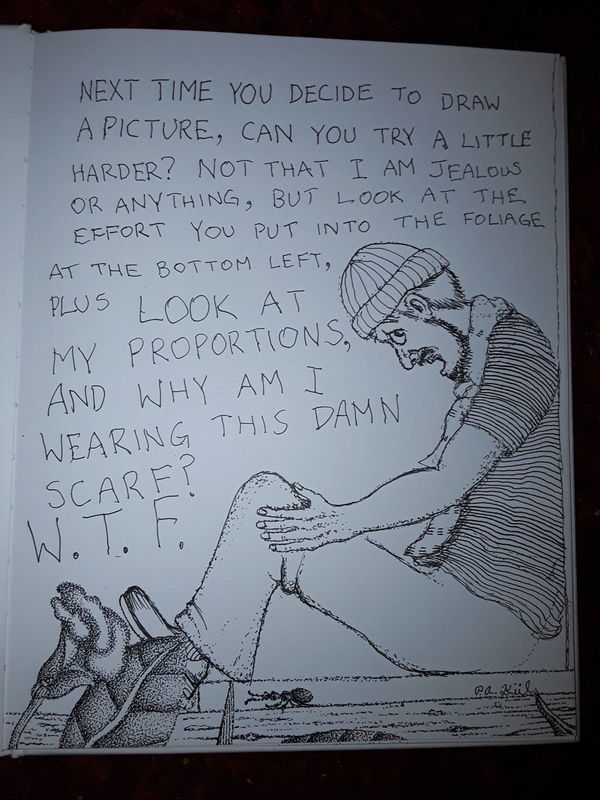 NEXT TIME YOU DECIDE TO DRAW
A PICTURE, CAN YOU TRY A LITTLE
HARDER? NOT THAT I AM JEALOUS
OR ANYTHING, BUT LOOK AT THE
EFFORT YOU PUT INTO THE FOLIAGE
AT THE BOTTOM LEFT,
PLUS LOOK AT
MY PROPORTIONS,
AND WHY AM I
WEARING THIS DAMN
SCARF?
W.T.F.